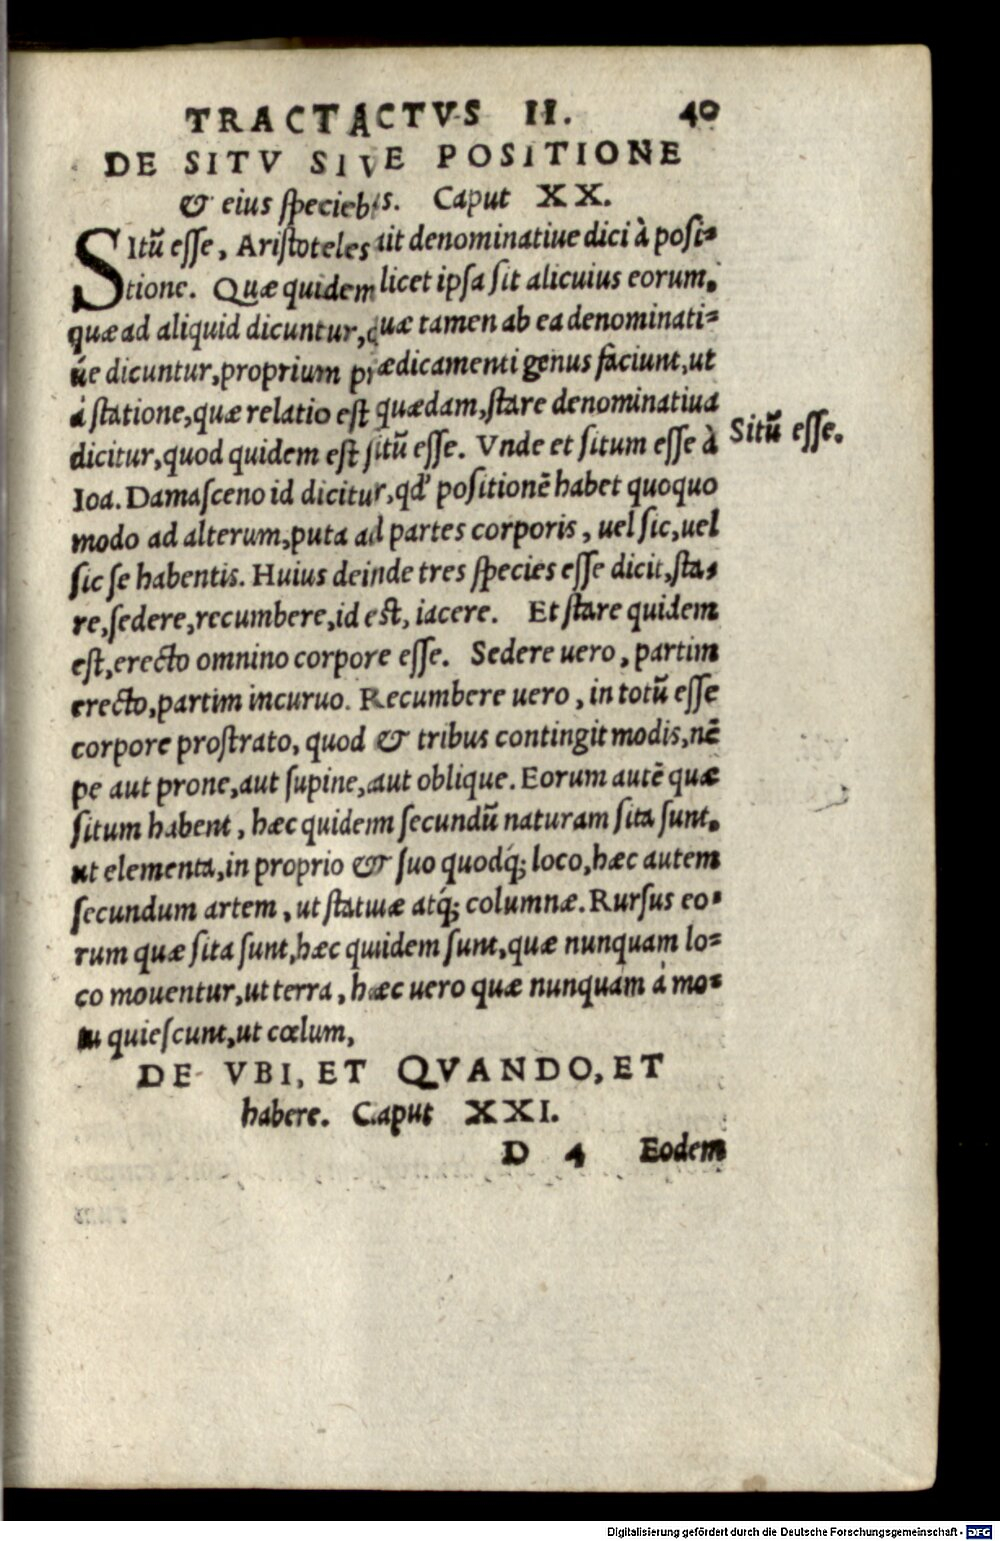 TRACTACTVS II. 40
DE SITV SIVE POSITIONE
& eius speciebus. Caput XX.
SItū esse, Aristoteles ait denominatiue dici à posi=
tione. Quæ quidem licet ipsa sit alicuius eorum,
quæ ad aliquid dicuntur, quæ tamen ab ea denominati=
ue dicuntur, proprium prædicamenti genus faciunt, ut
à statione, quæ relatio est quædam, stare denominatiua
dicitur, quod quidem est sitū esse. Vnde et situm esse à
Sitū esse.
Ioa. Damasceno id dicitur, qd' positionē habet quoquo
modo ad alterum, puta ad partes corporis, uel sic, uel
sic se habentis. Huius deinde tres species esse dicit, sta=
re, sedere, recumbere, id est, iacere. Et stare quidem
est, erecto omnino corpore esse. Sedere uero, partim
erecto, partim incuruo. Recumbere uero, in totū esse
corpore prostrato, quod & tribus contingit modis, nē
pe aut prone, aut supine, aut oblique. Eorum autē quæ
situm habent, hæc quidem secundū naturam sita sunt,
ut elementa, in proprio & suo quodq; loco, hæc autem
secundum artem, ut statuæ atq; columnæ. Rursus eo=
rum quæ sita sunt, hæc quidem sunt, quæ nunquam lo=
co mouentur, ut terra, hæc uero quæ nunquam à mo=
tu quiescunt, ut cœlum,
DE VBI, ET QVANDO, ET
habere. Caput XXI.
D 4 Eodem
Digitalisierung gefördert durch die Deutsche Forschungsgemeinschaft - DFG